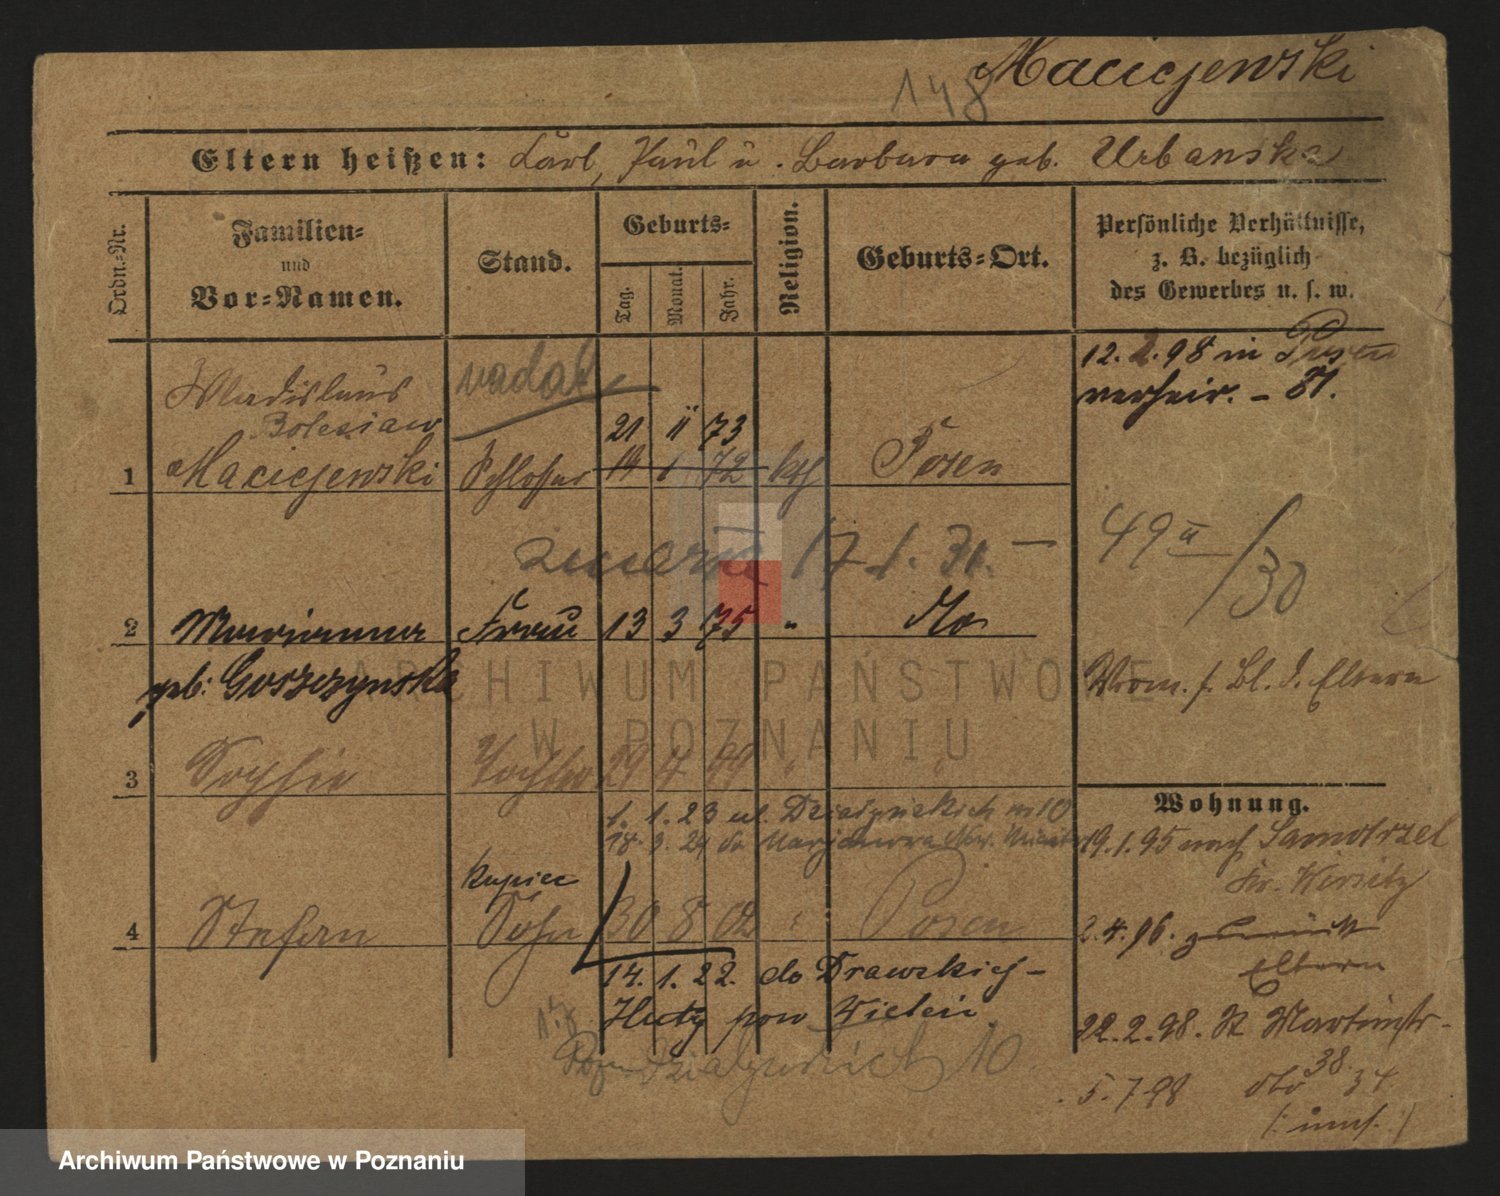 148 Maciejewski
Eltern heißen: Carl, Paul u. Barbara geb. Urbanska
Ordn.-Nr.
Familien-
und
Vor-Namen.
Stand.
Geburts-
Tag.
Monat.
Jahr.
Religion.
Geburts-Ort.
Persönliche Verhältnisse,
z. B. bezüglich
des Gewerbes u. s. w.
12. 2. 98 in Posen
verheir. - St.
Wladislaus
Boleslaw
21 II 73
1 Maciejewski Schlosser 14 1 72 kth Posen
49 II / 30
zmarł 17.1.31. —
2 Marianna Frau 13 3 75 " do
geb: Goszczynska
Vorm. s. Bl. d. Eltern
3 Sophie Tochter 29 99 " "
1. 1. 23 ul. Działyńskich m 10
18. 3. 24 do
Kupiec
4 Stefan Sohn 30 8 02 " Posen
14. 1. 22. do Drawskiej-
Huty pow Wieleń
Działyńskich 10
Wohnung.
19.1.95 nach Samotrzel
Kr. Wirsitz
2.4.96. zurück
Eltern
22.2.98. St Martinstr-
38.
5.7.98 dto 34
ARCHIWUM PAŃSTWOWE
W POZNANIU
Archiwum Państwowe w Poznaniu